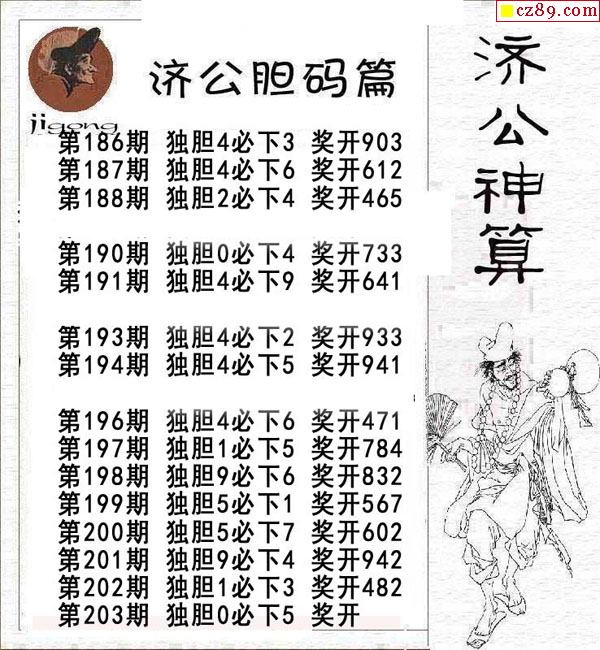 cz89.com
济公胆码篇
jigong
第186期 独胆4必下3 奖开903
第187期 独胆4必下6 奖开612
第188期 独胆2必下4 奖开465
第190期 独胆0必下4 奖开733
第191期 独胆4必下9 奖开641
第193期 独胆4必下2 奖开933
第194期 独胆4必下5 奖开941
第196期 独胆4必下6 奖开471
第197期 独胆1必下5 奖开784
第198期 独胆9必下6 奖开832
第199期 独胆5必下1 奖开567
第200期 独胆5必下7 奖开602
第201期 独胆9必下4 奖开942
第202期 独胆1必下3 奖开482
第203期 独胆0必下5 奖开
济公神算